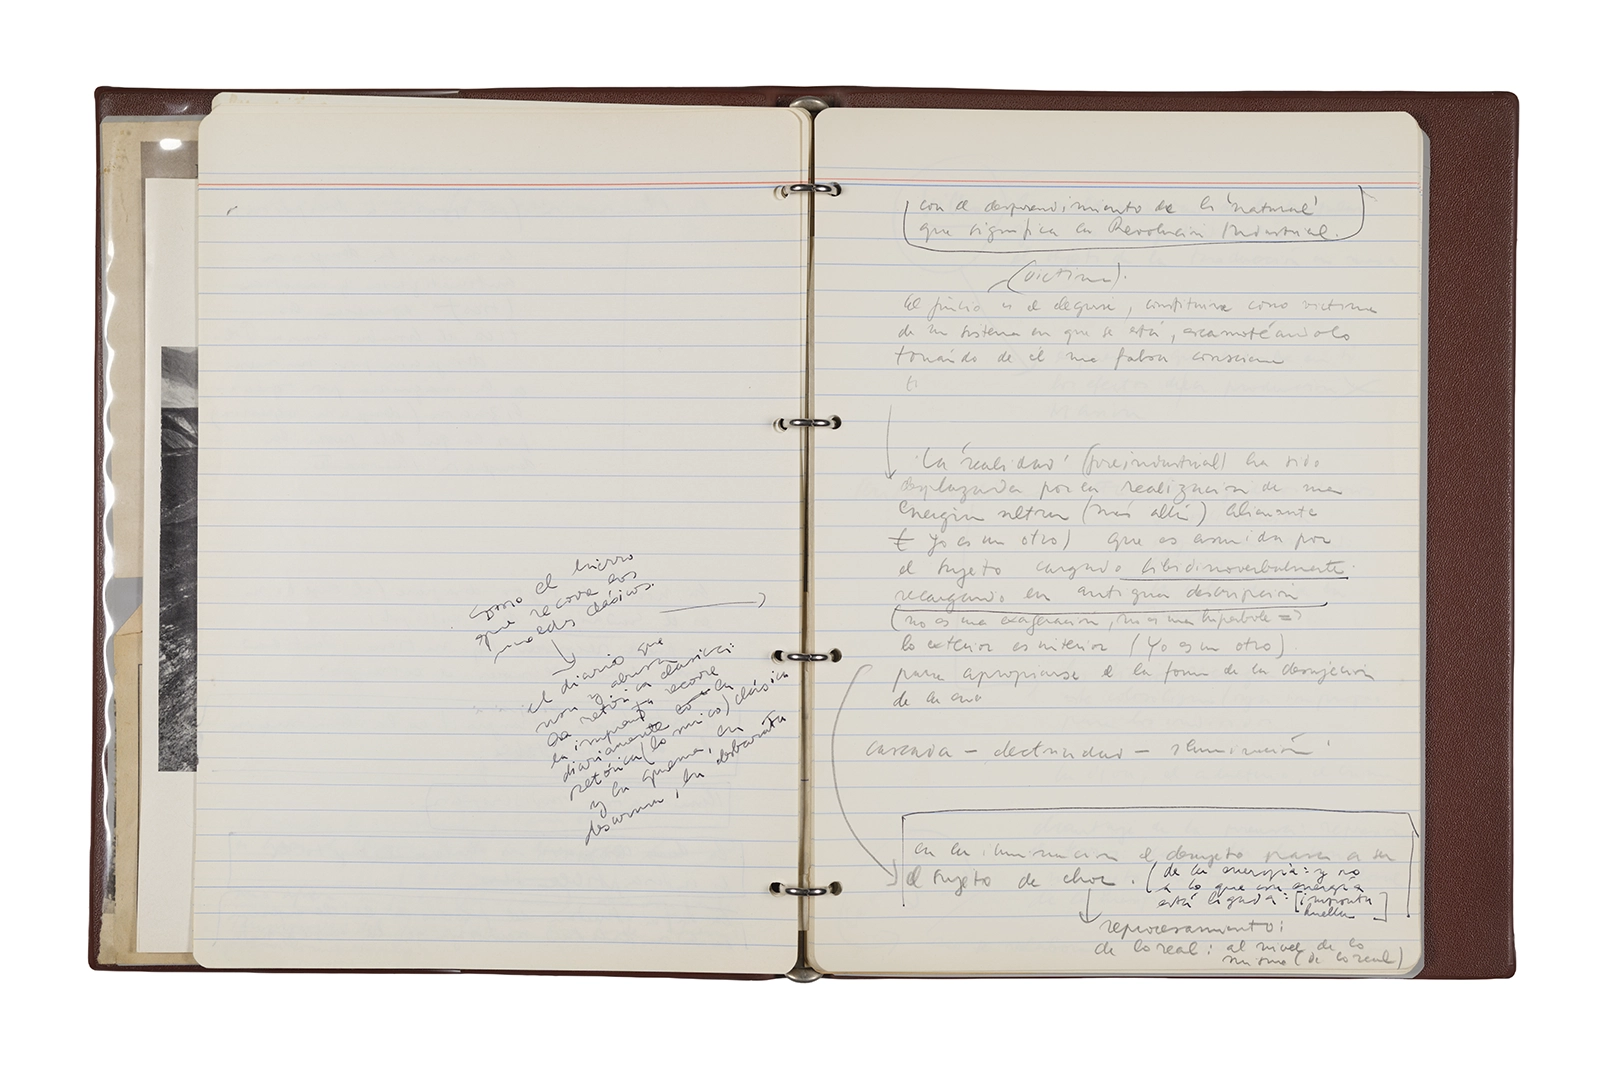 como el hierro
que recorre los
moldes clásicos.
el diario que
usa y abusa
la retórica clásica:
la imprenta recorre
diariamente con la
retórica (lo único) clásica
y la quema, la
desarma, la desbarata
con el desprendimiento de lo 'natural'
que significa la Revolución Industrial.
(víctima).
el es el , constituirse como víctima
de un sistema en que se está, escamoteándolo
tomando de él una falsa
La 'realidad' (preindustrial) ha sido
desplazada por la realización de una
energía ultra (más allá) alienante
Yo es un otro) que es asumida por
el sujeto cargado libidinoverbalmente
recargando en antigua descripción
(no es una exageración, no es una hipérbole =>
lo exterior es interior (Yo es un otro).
para apropiarse de la forma de la
de la
cascada — electricidad — iluminación
en la iluminación el desujeto pasa a ser
el sujeto de choc. (de la energía: y no
a lo que con energía
está ligada: [impronta
huella]
reprocesamiento:
de lo real: al nivel de lo
mismo (de lo real)